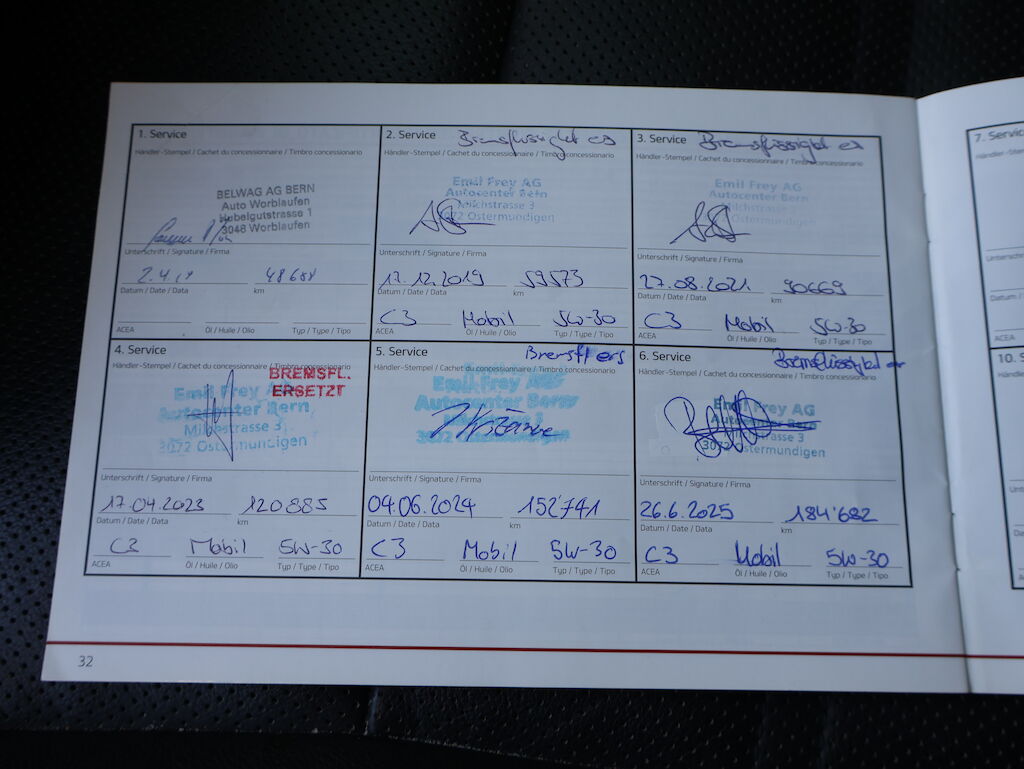 1. Service
Händler-Stempel / Cachet du concessionnaire / Timbro concessionario
BELWAG AG BERN
Auto Worblaufen
Hubelgutstrasse 1
3048 Worblaufen
Unterschrift / Signature / Firma
2.4.19
Datum / Date / Data
km
ACEA
Öl / Huile / Olio
Typ / Type / Tipo
2. Service
Bremsflüssigkt es
Händler-Stempel / Cachet du concessionnaire / Timbro concessionario
Emil Frey AG
Autocenter Bern
Milchstrasse 3
3072 Ostermundigen
Unterschrift / Signature / Firma
17.12.2019 59573
Datum / Date / Data
km
C3 Mobil 5W-30
ACEA
Öl / Huile / Olio
Typ / Type / Tipo
3. Service
Bremsflüssigkt es
Händler-Stempel / Cachet du concessionnaire / Timbro concessionario
Emil Frey AG
Autocenter Bern
Milchstrasse 3
3072 Ostermundigen
Unterschrift / Signature / Firma
27.08.2021 90669
Datum / Date / Data
km
C3 Mobil 5W-30
ACEA
Öl / Huile / Olio
Typ / Type / Tipo
4. Service
Händler-Stempel / Cachet du concessionnaire / Timbro concessionario
BREMSFL.
ERSETZT
Emil Frey AG
Autocenter Bern
Milchstrasse 3
3072 Ostermundigen
Unterschrift / Signature / Firma
17.04.2023 120885
Datum / Date / Data
km
C3 Mobil 5W-30
ACEA
Öl / Huile / Olio
Typ / Type / Tipo
5. Service
Bremsfl ers
Händler-Stempel / Cachet du concessionnaire / Timbro concessionario
Emil Frey AG
Autocenter Bern
Milchstrasse 3
3072 Ostermundigen
Unterschrift / Signature / Firma
04.06.2024 152'741
Datum / Date / Data
km
C3 Mobil 5W-30
ACEA
Öl / Huile / Olio
Typ / Type / Tipo
6. Service
Bremsflüssigkt er
Händler-Stempel / Cachet du concessionnaire / Timbro concessionario
Emil Frey AG
Autocenter Bern
Milchstrasse 3
3072 Ostermundigen
Unterschrift / Signature / Firma
26.6.2025 184'682
Datum / Date / Data
km
C3 Mobil 5W-30
ACEA
Öl / Huile / Olio
Typ / Type / Tipo
7. Servic
Händler-Stem
Unterschrift
Datum /
ACEA
10. S
Händler
32